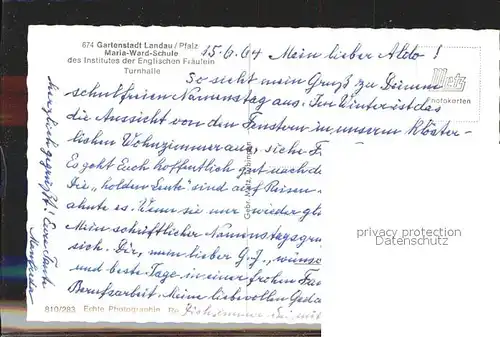 674 Gartenstadt Landau / Pfalz
Maria-Ward-Schule
des Institutes der Englischen Fräulein
Turnhalle
15.6.64 Mein lieber Aldo!
So sieht mein Gruß zu Deinem
schulfreien Namenstag aus. Im Winter ist das
die Aussicht von den Fenstern in unserem Klöster-
lichen Wohnzimmer aus, siehe
Es geht Euch hoffentlich gut
Die "holden Leute" sind auf Reisen
ahnte es. Wenn sie nur wieder
Mein schriftlicher Namenstags
sich. Dir, mein lieber G.J.,
und beste Tage in einer frohen
Berufsarbeit. Meine liebevollen
mit
Herzlich gegrüßt! Eure Tante
Metz
Photokarten
Gebr. Metz, Tübingen
810/283 Echte Photographie
privacy protection
DatenSchutz